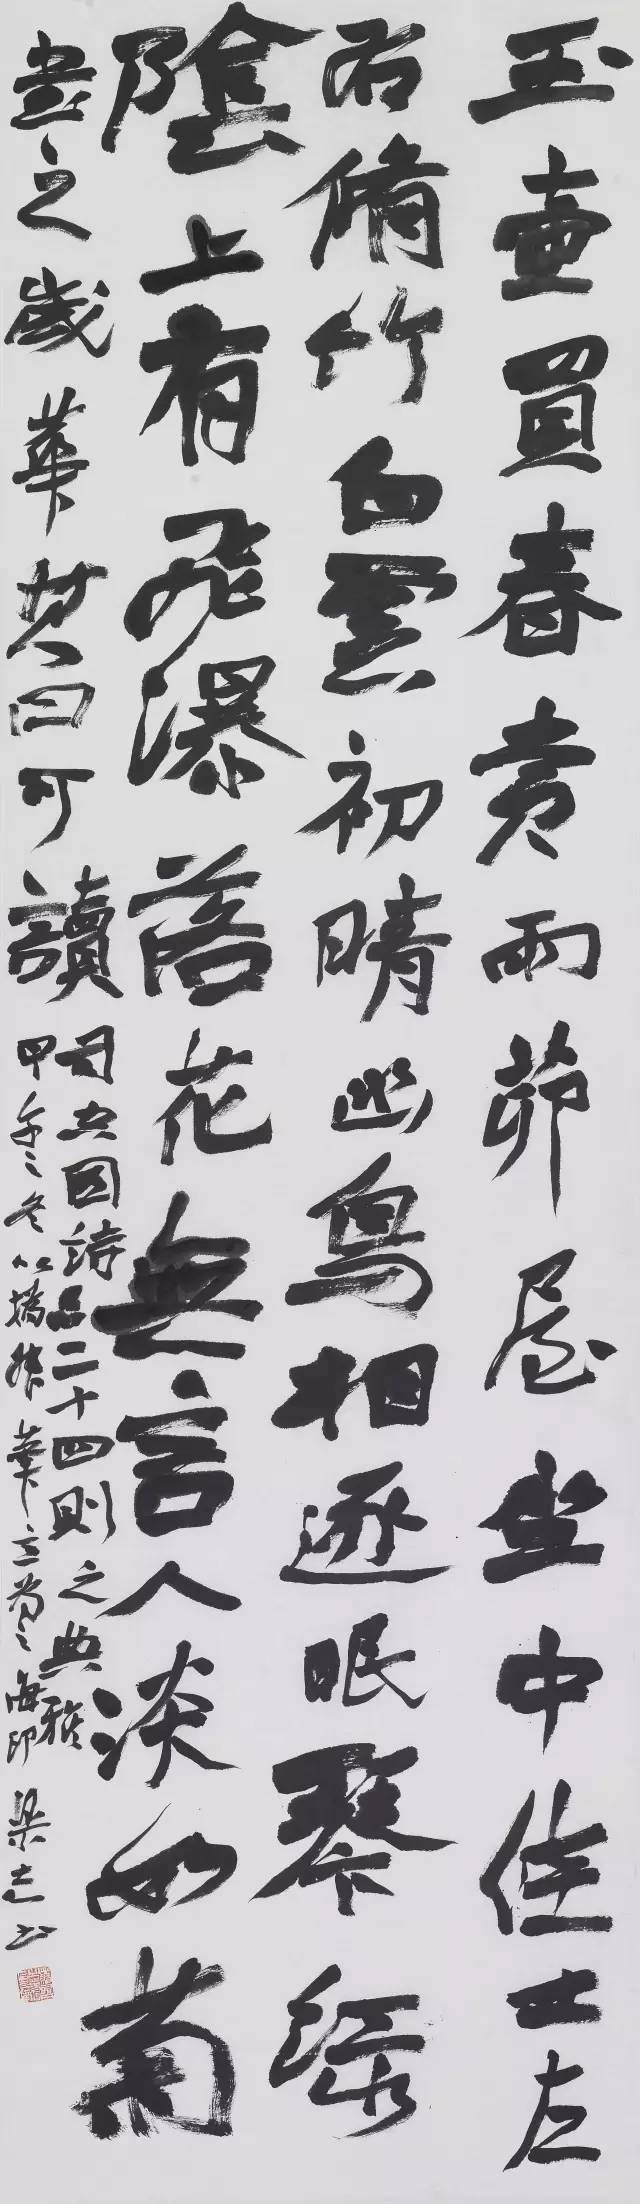 玉壺買春賞雨茆屋坐中佳士左
右脩竹白雲初晴幽鳥相逐眠琴綠
陰上有飛瀑落花無言人淡如菊
書之歲華其曰可讀
司空圖詩品二十四則之典雅
甲午之冬